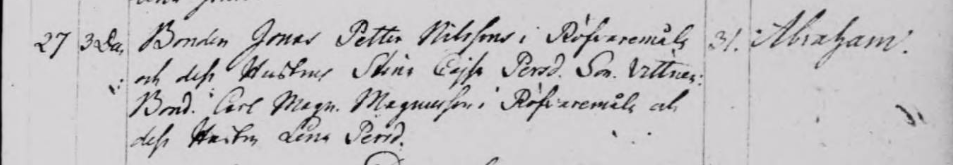 27 3 Da. Bonden Jonas Petter Nilssons i Röfvaremåla 31. Abraham.
och dess Hustrus Stina Cajsa Persd. Son. Vittnen:
Bond. Carl Magn. Magnusson i Röfvaremåla och
dess Hustru Lena Persd.